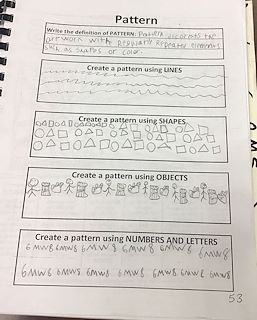 Pattern
Write the definition of PATTERN: Pattern decorates the
artwork with regularly repeated elements
such as shapes or color.
Create a pattern using LINES
Create a pattern using SHAPES
Create a pattern using OBJECTS
Create a pattern using NUMBERS AND LETTERS
6MW8 6MW8 6MW8 6MW8 6MW8 6MW8
6MW8 6MW8 6MW8 6MW8 6MW8 6MW8 6MW8
53